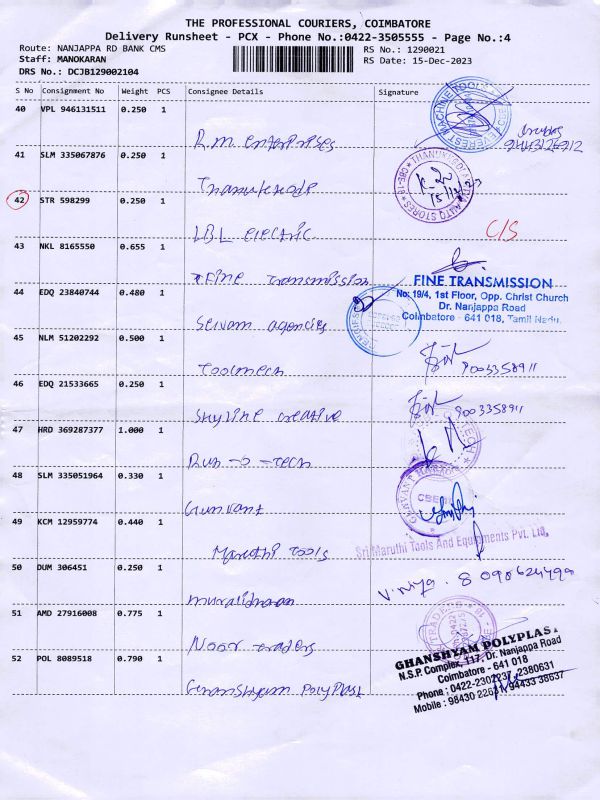 THE PROFESSIONAL COURIERS, COIMBATORE
Delivery Runsheet - PCX - Phone No.:0422-3505555 - Page No.:4
Route: NANJAPPA RD BANK CMS
RS No.: 1290021
Staff: MANOKARAN
RS Date: 15-Dec-2023
DRS No.: DCJB129002104
S No Consignment No Weight PCS Consignee Details Signature
40 VPL 946131511 0.250 1
R.M. Enterprises
41 SLM 335067876 0.250 1
42 STR 598299 0.250 1
LBL Electric
C/S
43 NKL 8165550 0.655 1
Fine Transmission
FINE TRANSMISSION
No: 19/4, 1st Floor, Opp. Christ Church
Dr. Nanjappa Road
Coimbatore - 641 018, Tamil Nadu.
44 EDQ 23840744 0.480 1
Selvam agencies
45 NLM 51202292 0.500 1
Toolmech
9003358911
46 EDQ 21533665 0.250 1
Skyline creative
9003358911
47 HRD 369287377 1.000 1
48 SLM 335051964 0.330 1
Gunvant
49 KCM 12959774 0.440 1
Maruthi Tools
Sri Maruthi Tools And Equipments Pvt. Ltd,
50 DUM 306451 0.250 1
Muralidharan
51 AMD 27916008 0.775 1
Noor traders
52 POL 8089518 0.790 1
Ghanshyam Polyplast
GHANSHYAM POLYPLAST
N.S.P. Complex, 117, Dr. Nanjappa Road
Coimbatore - 641 018
Phone : 0422-2302237, 2380631
Mobile : 98430 22631, 94433 38637